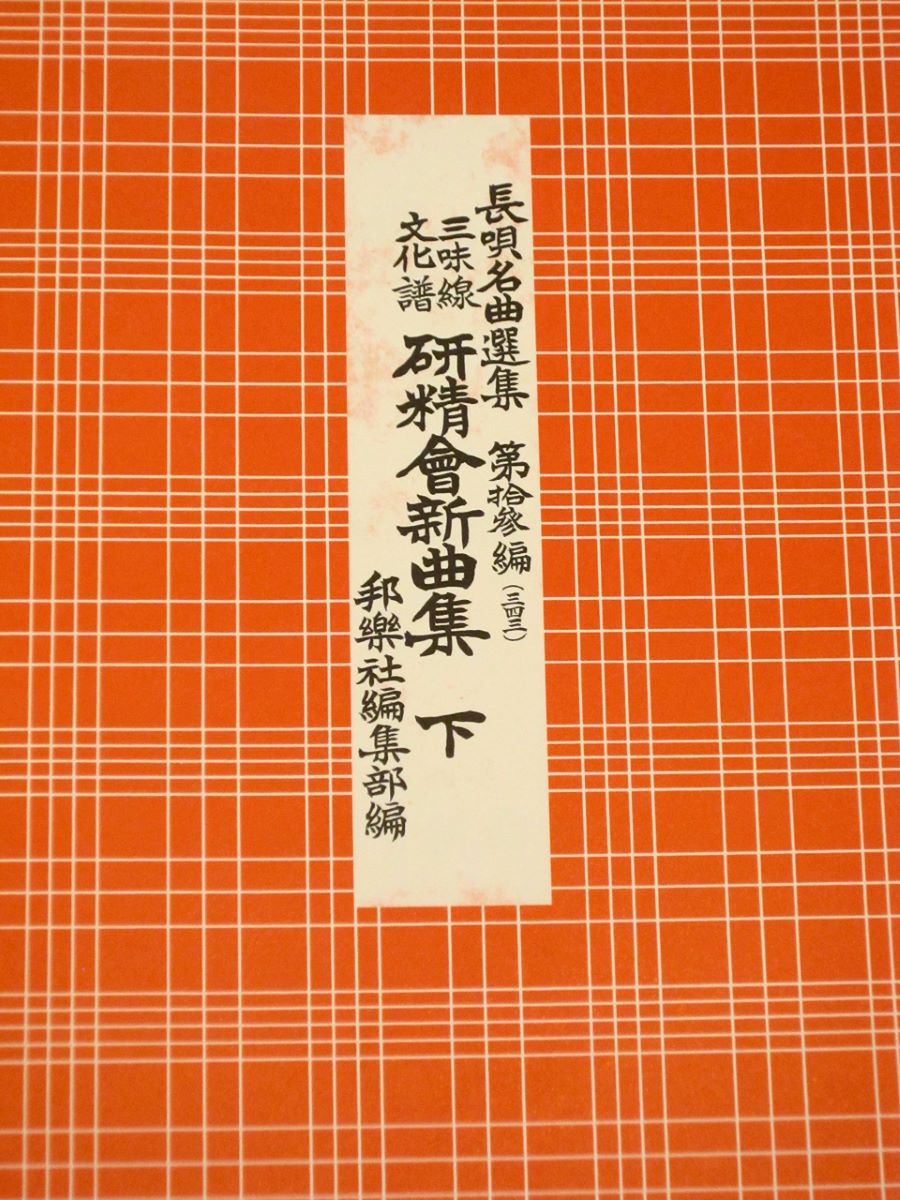 長唄名曲選集 第拾參編(三四三)
三味線
文化譜
研精會新曲集 下
邦樂社編集部編